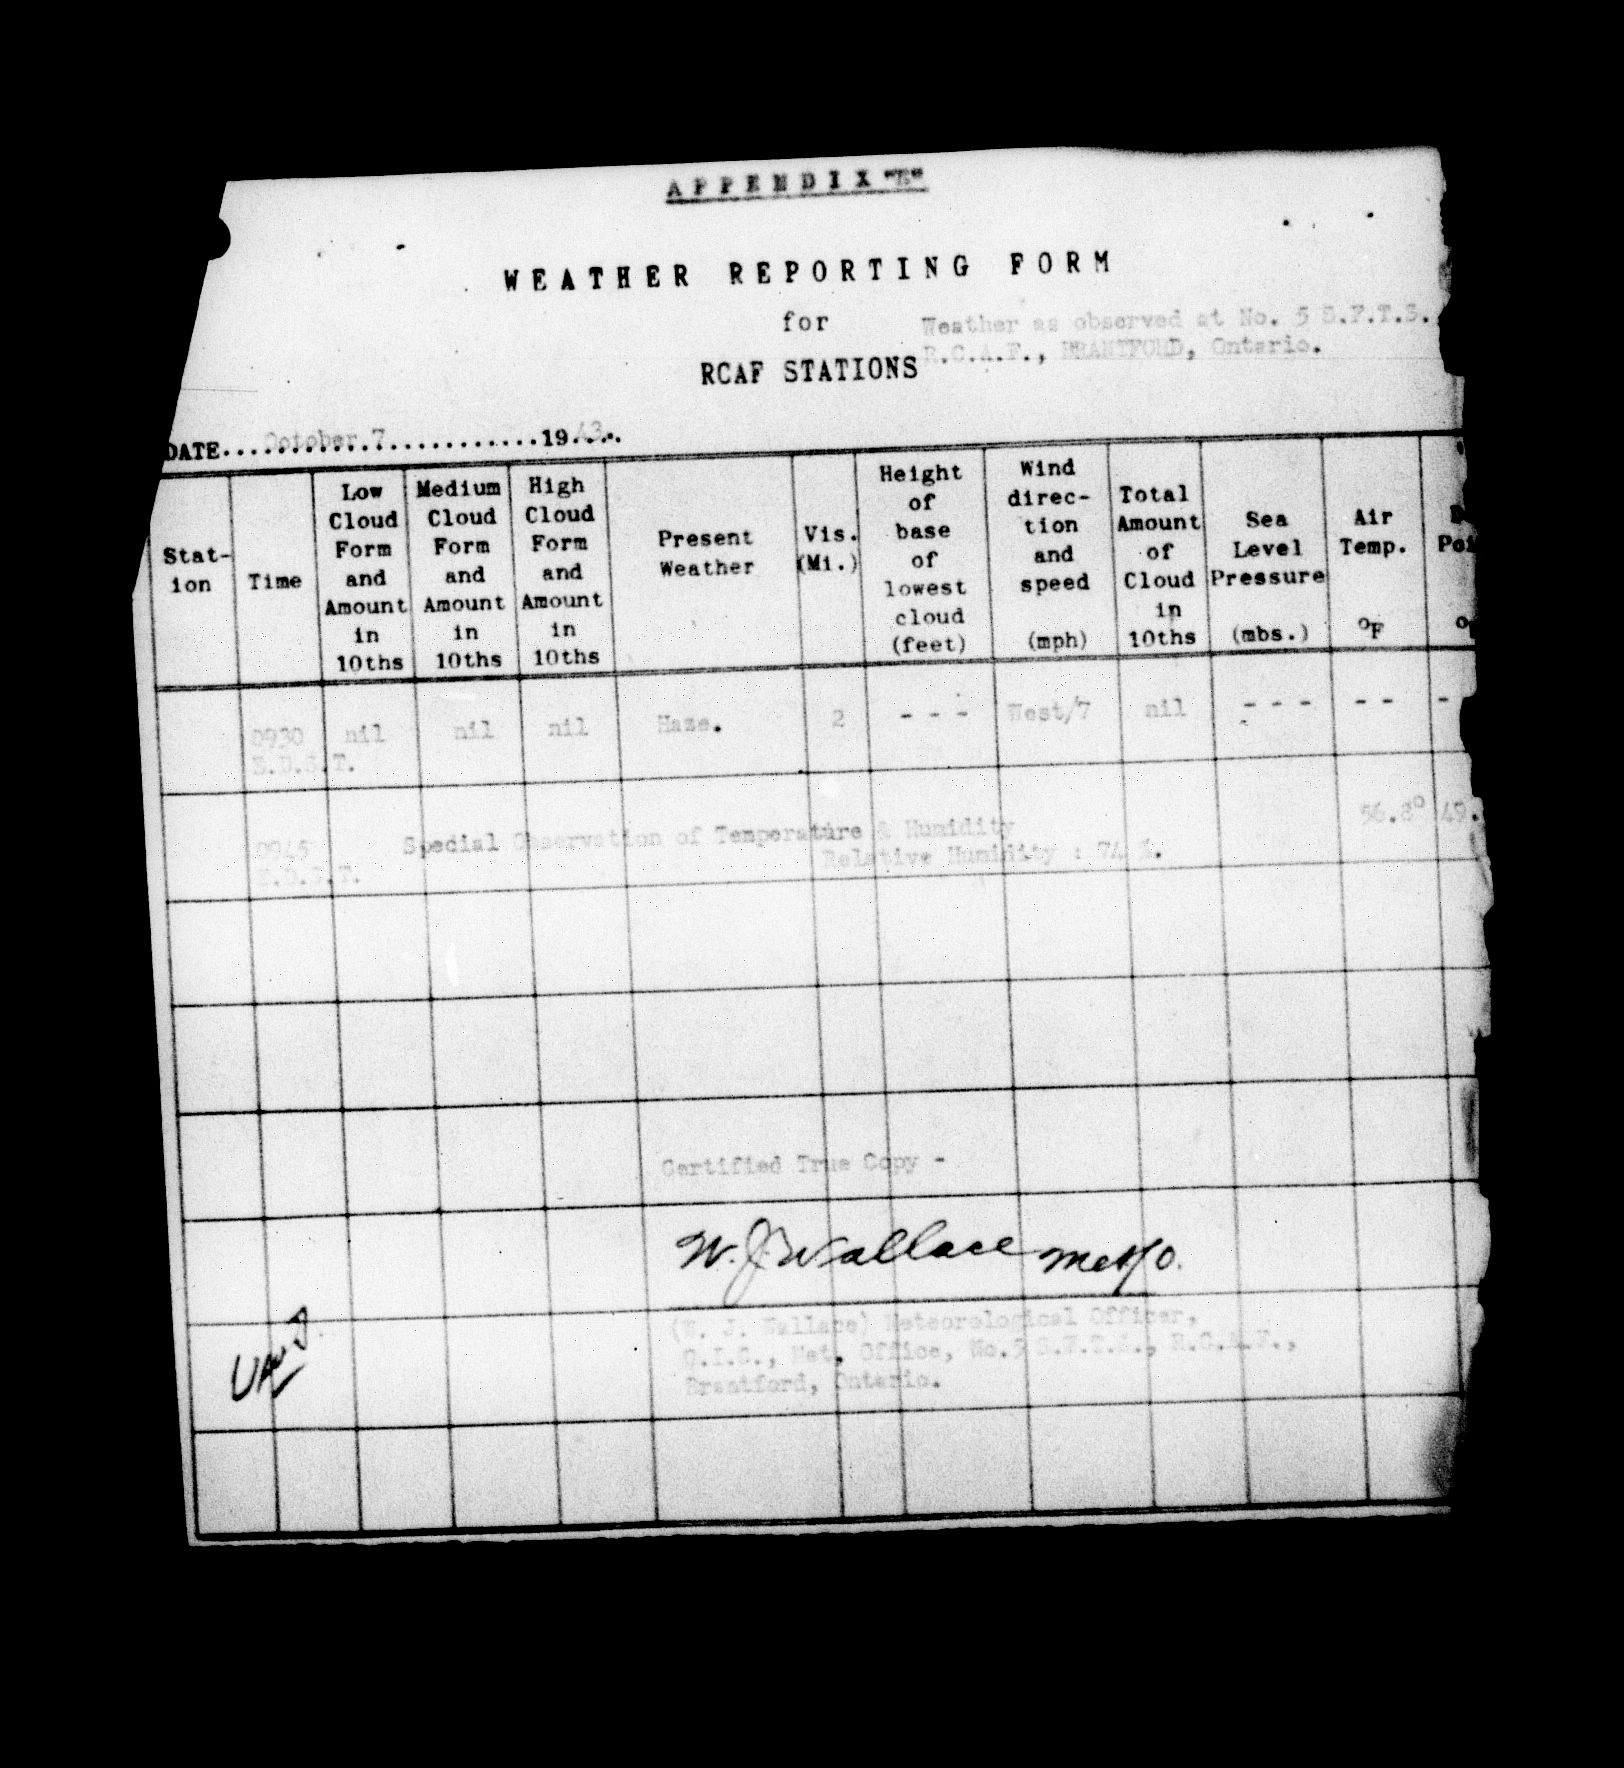 APPENDIX "E"
WEATHER REPORTING FORM
for
Weather as observed at No. 5 S.F.T.S.
R.C.A.F., BRANTFORD, Ontario.
RCAF STATIONS
DATE...October.7............1943..
Stat-
ion
Time
Low
Cloud
Form
and
Amount
in
10ths
Medium
Cloud
Form
and
Amount
in
10ths
High
Cloud
Form
and
Amount
in
10ths
Present
Weather
Vis.
(Mi.)
Height
of
base
of
lowest
cloud
(feet)
Wind
direc-
tion
and
speed
(mph)
Total
Amount
of
Cloud
in
10ths
Sea
Level
Pressure
(mbs.)
Air
Temp.
°F
0930 nil nil nil Haze. 2 - - - West/7 nil - - - - - -
E.D.S.T.
0945 Special Observation of Temperature & Humidity 56.8° 49.
E.D.S.T. Relative Humidity : 74 %.
Certified True Copy -
W. J. Wallace Met/O.
(W. J. Wallace) Meteorological Officer,
O.I.C., Met. Office, No.5 S.F.T.S., R.C.A.F.,
Brantford, Ontario.